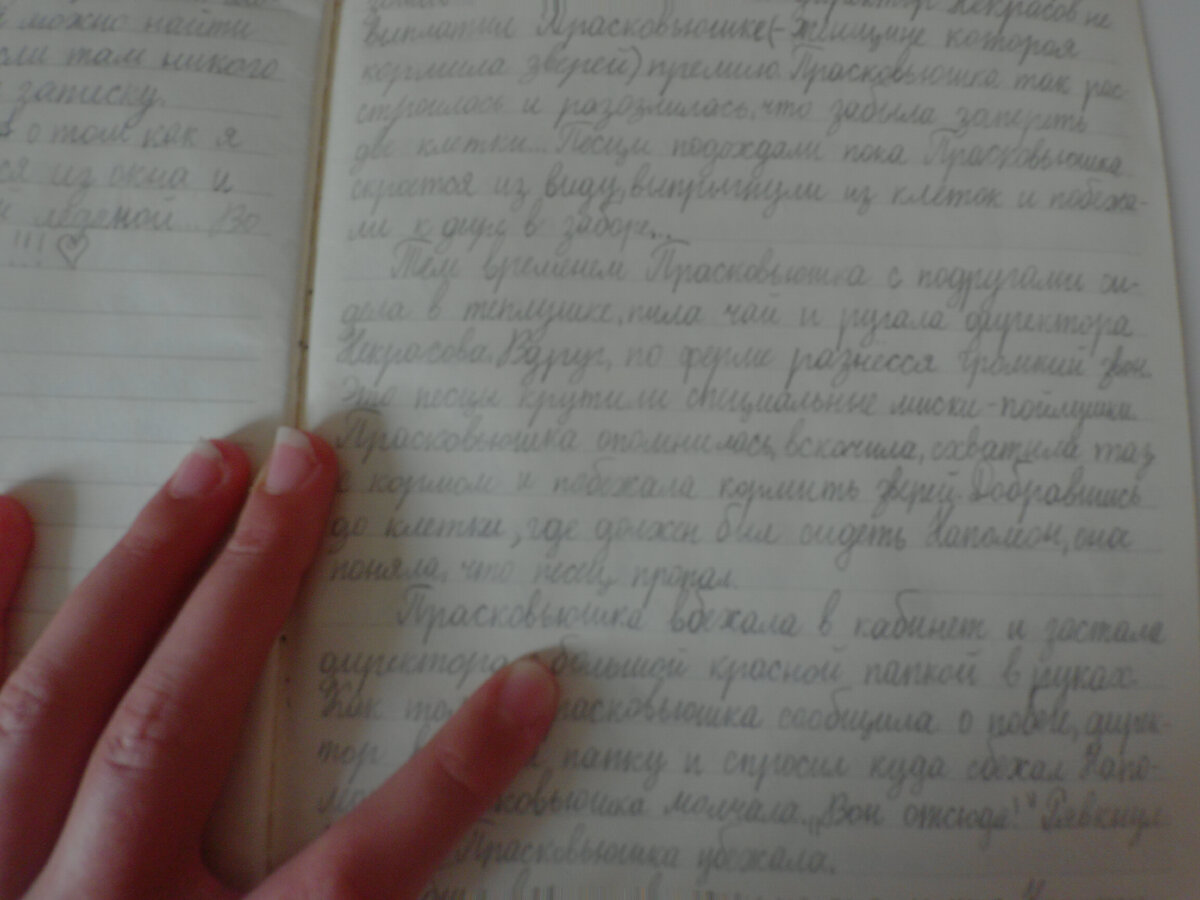 можно найти
там никого
записку.
о том как я
ся из окна и
леденой... Во
!!! ♡
директор Некрасов не
выплатил Прасковьюшке(-женщине которая
кормила зверей) премию. Прасковьюшка так рас-
строилась и разозлилась, что забыла запереть
две клетки... Песцы подождали пока Прасковьюшка
скроется из виду, выпрыгнули из клеток и побежа-
ли к дыре в заборе...
Тем временем Прасковьюшка с подругами си-
дела в теплушке, пила чай и ругала директора
Некрасова. Вдруг, по ферме разнёсся громкий звон.
Это песцы крутили специальные миски-поилушки.
Прасковьюшка опомнилась, вскочила, схватила таз
с кормом и побежала кормить зверей. Добравшись
до клетки, где должен был сидеть Наполеон, она
поняла, что песец пропал.
Прасковьюшка вбежала в кабинет и застала
директора большой красной папкой в руках.
Как прасковьюшка сообщила о побеге, дирек-
тор папку и спросил куда сбежал Напо-
ковьюшка молчала. „Вон отсюда!" Рявкнул
Прасковьюшка убежала.